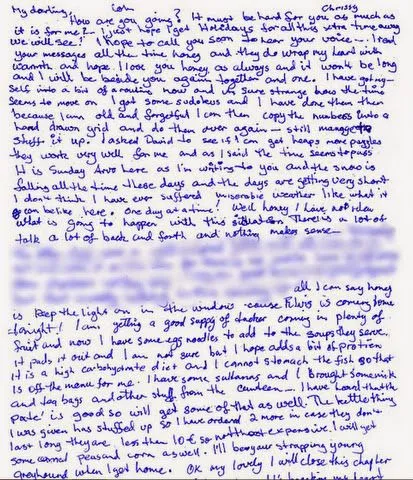 My darling, Chrissy
How are you going? It must be hard for you as much as
it is for me? I just hope I get Holidays for all this time away
we will see! I hope to call you soon to hear your voice - I read
your messages all the time honey and they do wrap my heart with
warmth and hope. I love you honey as always and it wont be long
and I will be beside you again together and one. I have got my-
self into a bit of a routine now and im sure strange how the time
seems to move on. I got some sudokus and I have done them then
because I am old and forgetful I can then copy the numbers into a
hand drawn grid and do them over again - still manage to
stuff it up. I asked David to see if I can get heaps more puzzles
they work very well for me and as I said the time seems to pass
It is Sunday Arvo here as I'm writing to you and the snow is
falling all the time these days and the days are getting very short
I don't think I have ever suffered miserable weather like what it
can be like here. One day at a time! Well honey I have not idea
what is going to happen with this situation There is a lot of
talk a lot of back and forth and nothing makes sense -
all I can say honey
is keep the light on in the window cause Elvis is coming home
tonight! I am getting a good supply of tucker coming in plenty of
fruit and now I have some egg noodles to add to the soups they serve.
It pads it out and I am not sure but I hope adds a bit of protien
It is a high carbohydrate diet and I cannot stomach the fish so that
is off the menu for me. I have some sultanas and I brought some milk
and tea bags and other stuff from the canteen - I have heard that the
pate' is good so will get some of that as well. The kettle thing
I was given has stuffed up so I have ordered 2 more in case they don't
last long they are less then 10 € so not that expensive. I will get
some canned peas and corn as well. I'll be your strapping young
Greyhound when I get home. OK my lovely I will close this chapter
my heart